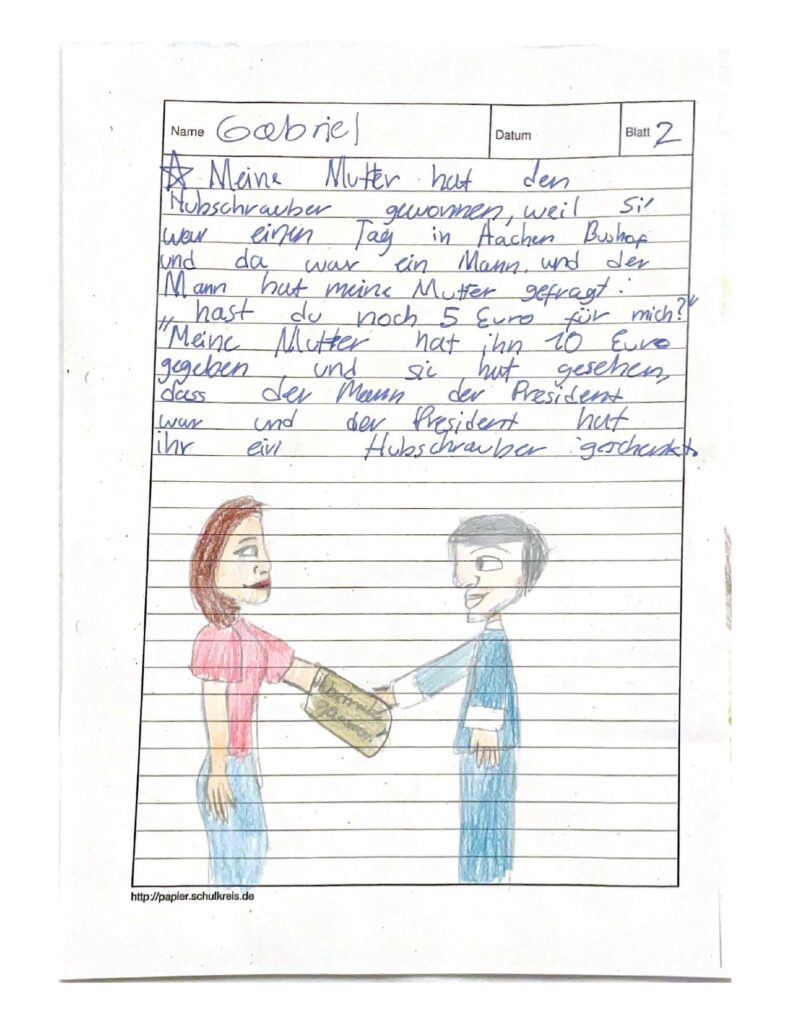 Name Gabriel Datum Blatt 2
Meine Mutter hat den
Hubschrauber gewonnen, weil sie
war einen Tag in Aachen Bushof
und da war ein Mann und der
Mann hat meine Mutter gefragt:
„hast du noch 5 Euro für mich?"
Meine Mutter hat ihn 10 Euro
gegeben und sie hat gesehen,
dass der Mann der President
war und der President hat
ihr ein Hubschrauber geschenkt.
http://papier.schulkreis.de